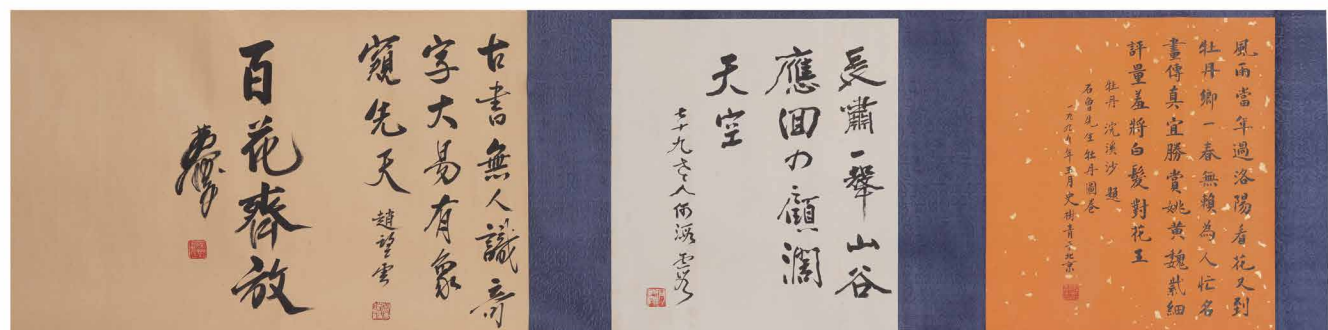 風雨當年過洛陽看花又到
牡丹鄉一春無賴為人忙名
畫傳真宜勝賞姚黃魏紫細
評量羞將白髮對花王
牡丹 浣溪沙 題
石魯先生牡丹圖卷
年三月史樹青于北京
長嘯一聲山谷
應回顧
天空
七十九老人何海霞
古書無人識奇
字大易有象
窺先天
趙望雲
百花齊放